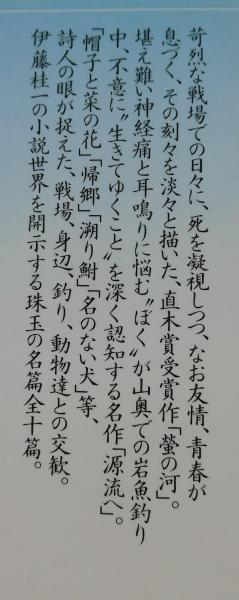 苛烈な戦場での日々に、死を凝視しつつ、なお友情、青春が
息づく、その刻々を淡々と描いた、直木賞受賞作「螢の河」。
堪え難い神経痛と耳鳴りに悩む〝ぼく〟が山奥での岩魚釣り
中、不意に〝生きてゆくこと〟を深く認知する名作「源流へ」。
「帽子と菜の花」「帰郷」「溯り鮒」「名のない犬」等、
詩人の眼が捉えた、戦場、身辺、釣り、動物達との交歓。
伊藤桂一の小説世界を開示する珠玉の名篇全十篇。